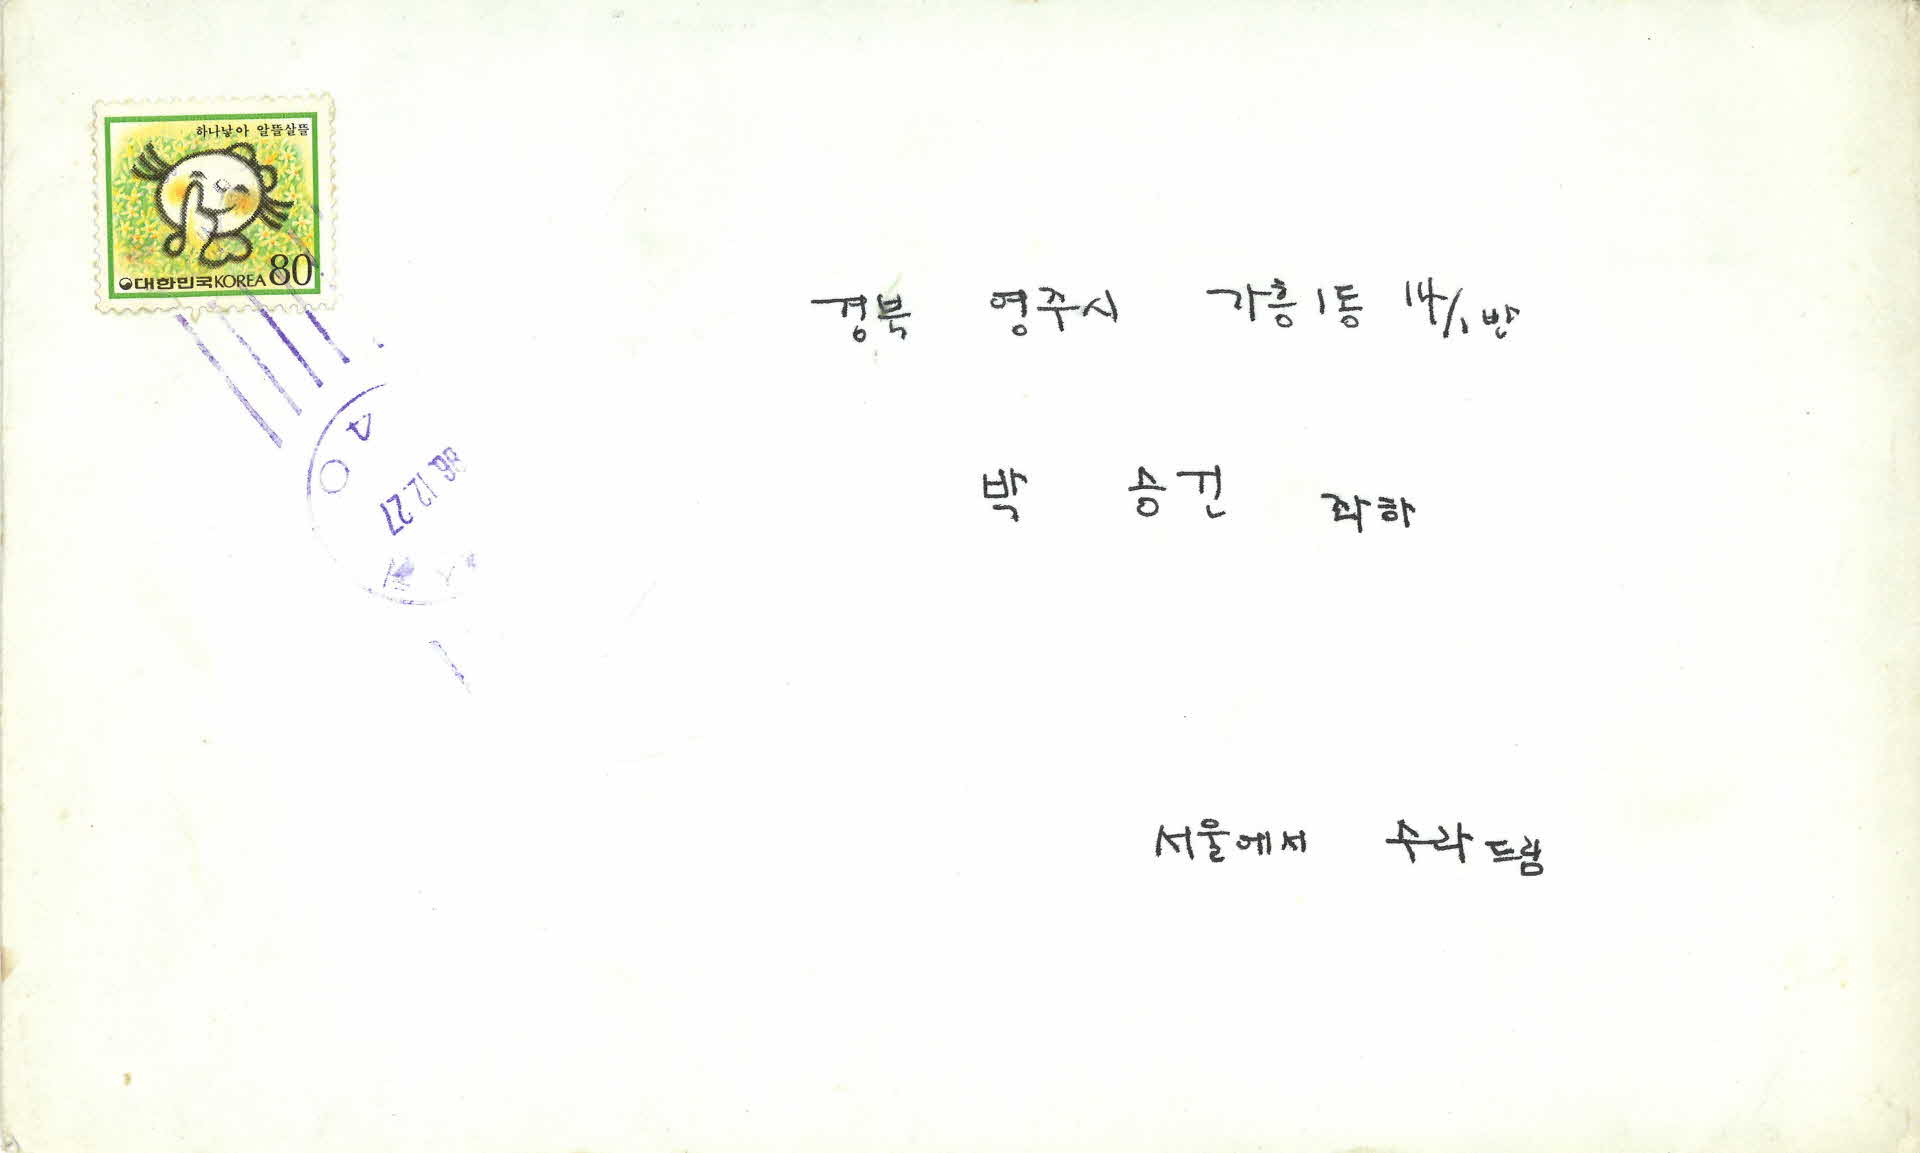 하나낳아 알뜰살뜰
대한민국KOREA 80
86.12.27
경북 영주시 가흥1동 14/1반
박 승긴 좌하
서울에서 수라 드림